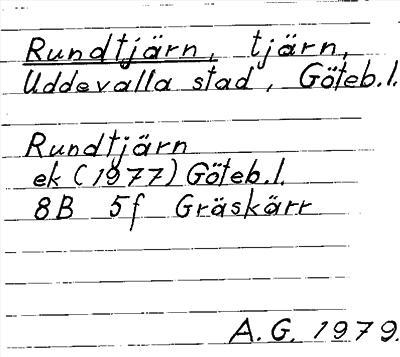 Rundtjärn, tjärn,
Uddevalla stad, Göteb.l.
Rundtjärn
ek (1977) Göteb.l.
8B 5f Gräskärr
A.G. 1979.